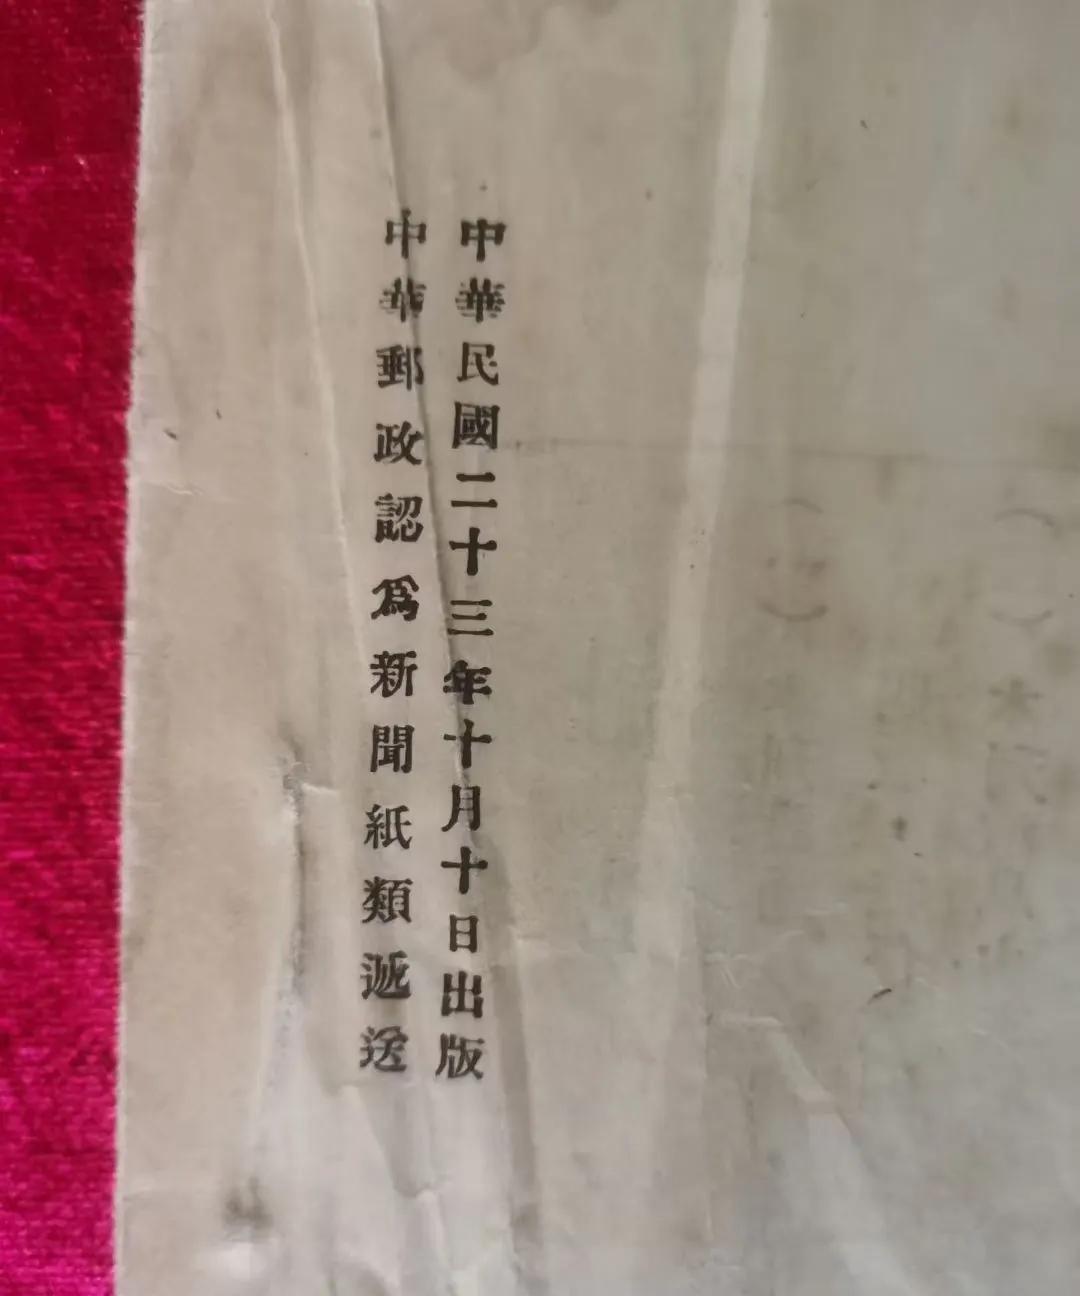 中華民國二十三年十月十日出版
中華郵政認爲新聞紙類遞送